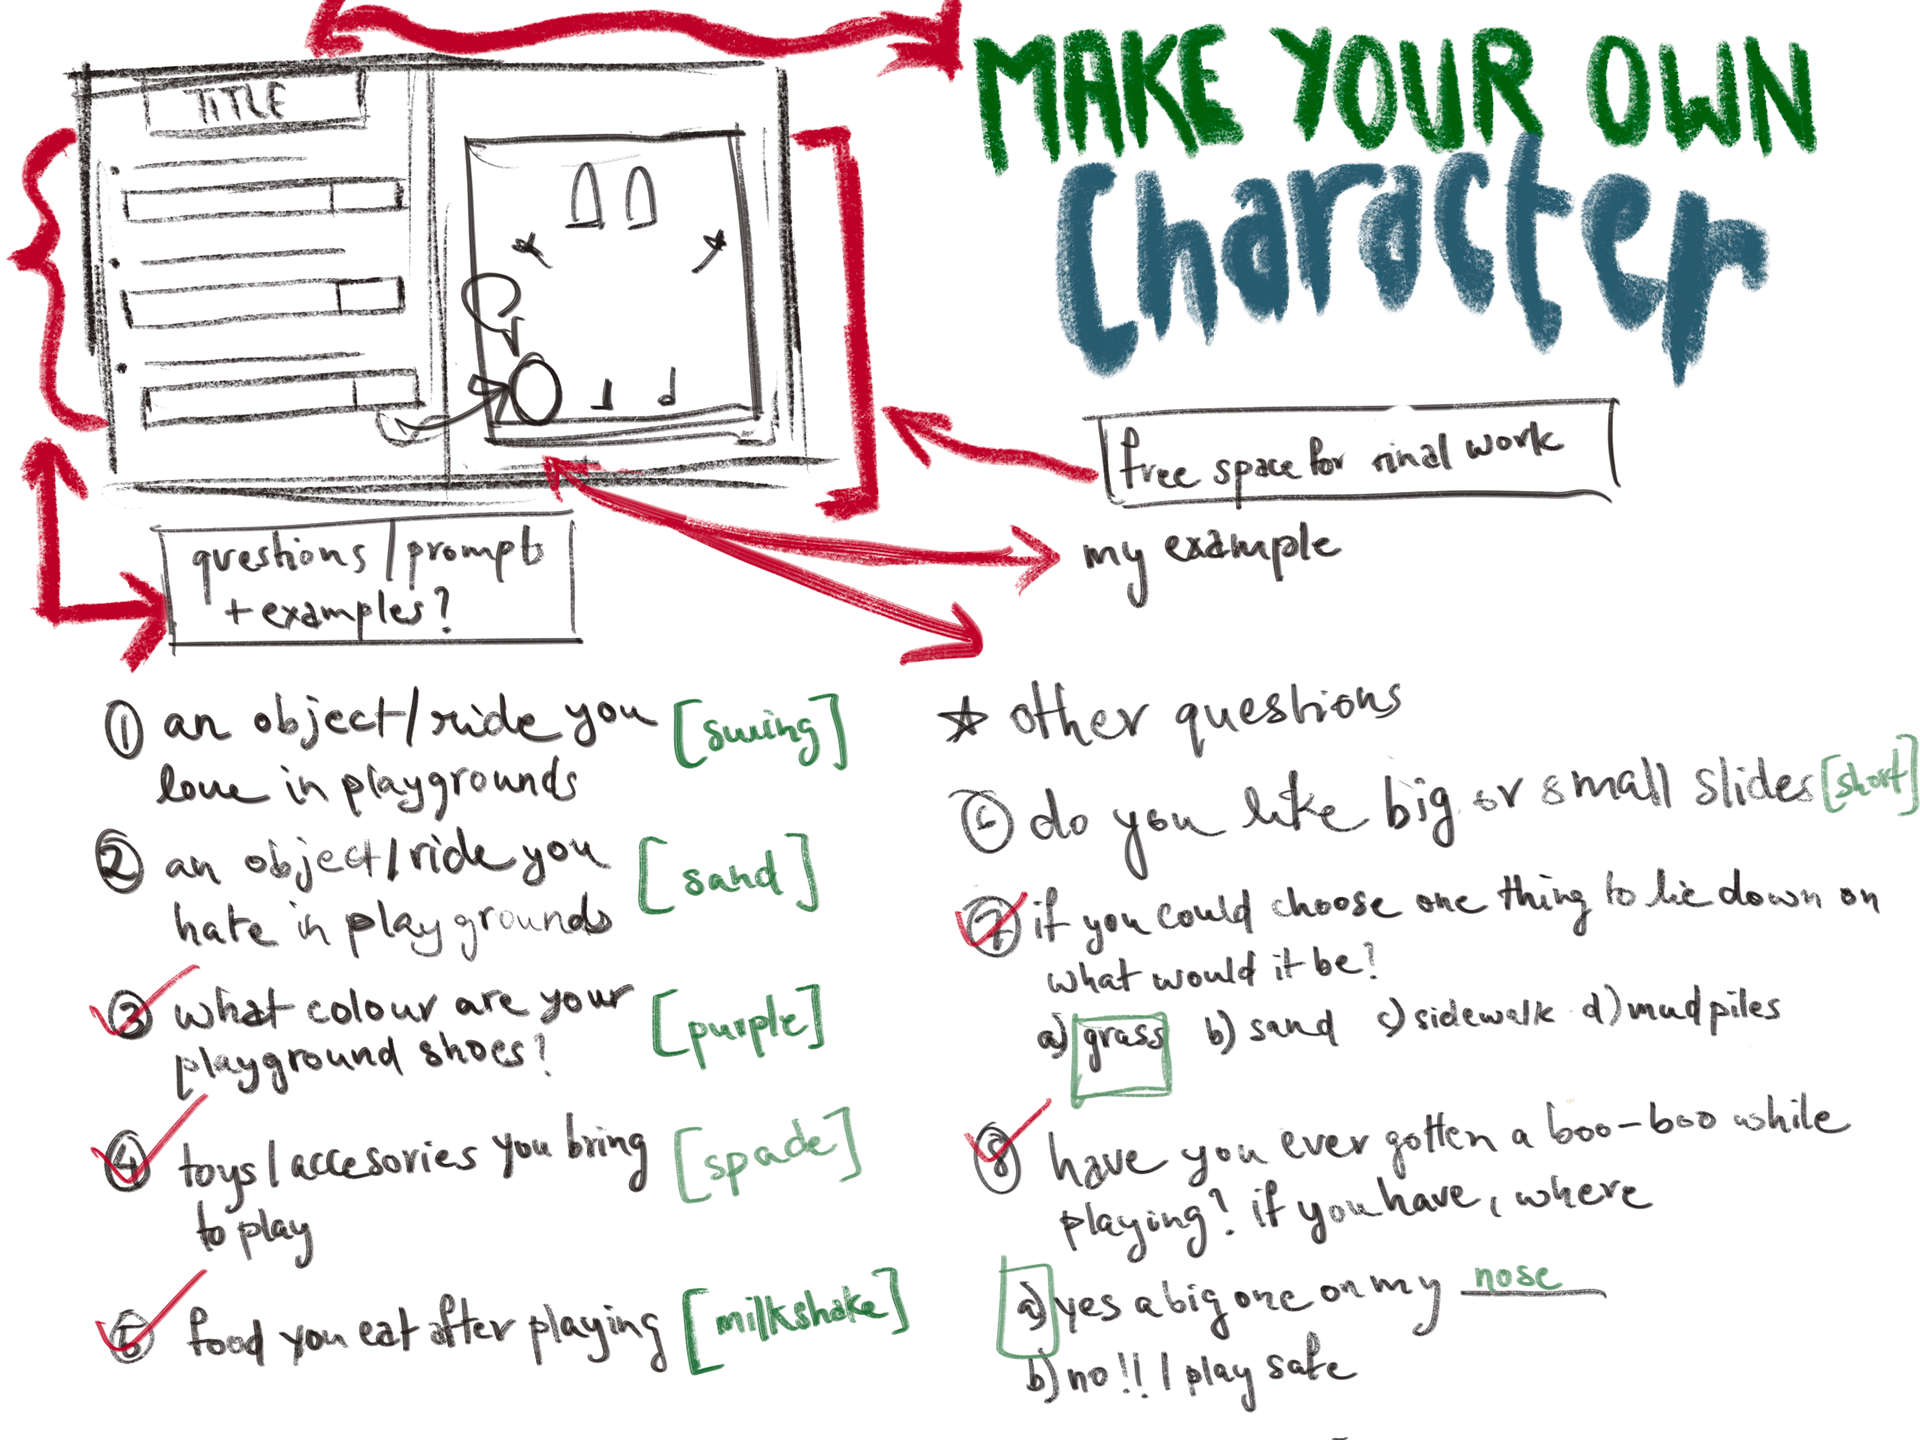 MAKE YOUR OWN
Character
TITLE
free space for final work
my example
questions / prompts
+ examples?
1 an object/ride you [swing]
love in playgrounds
2 an object/ride you [sand]
hate in playgrounds
3 what colour are your [purple]
playground shoes?
4 toys/accesories you bring [spade]
to play
5 food you eat after playing [milkshake]
☆ other questions
6 do you like big or small slides [short]
7 if you could choose one thing to lie down on
what would it be?
a) grass b) sand c) sidewalk d) mud piles
8 have you ever gotten a boo-boo while
playing? if you have, where
a) yes a big one on my nose
b) no!! I play safe